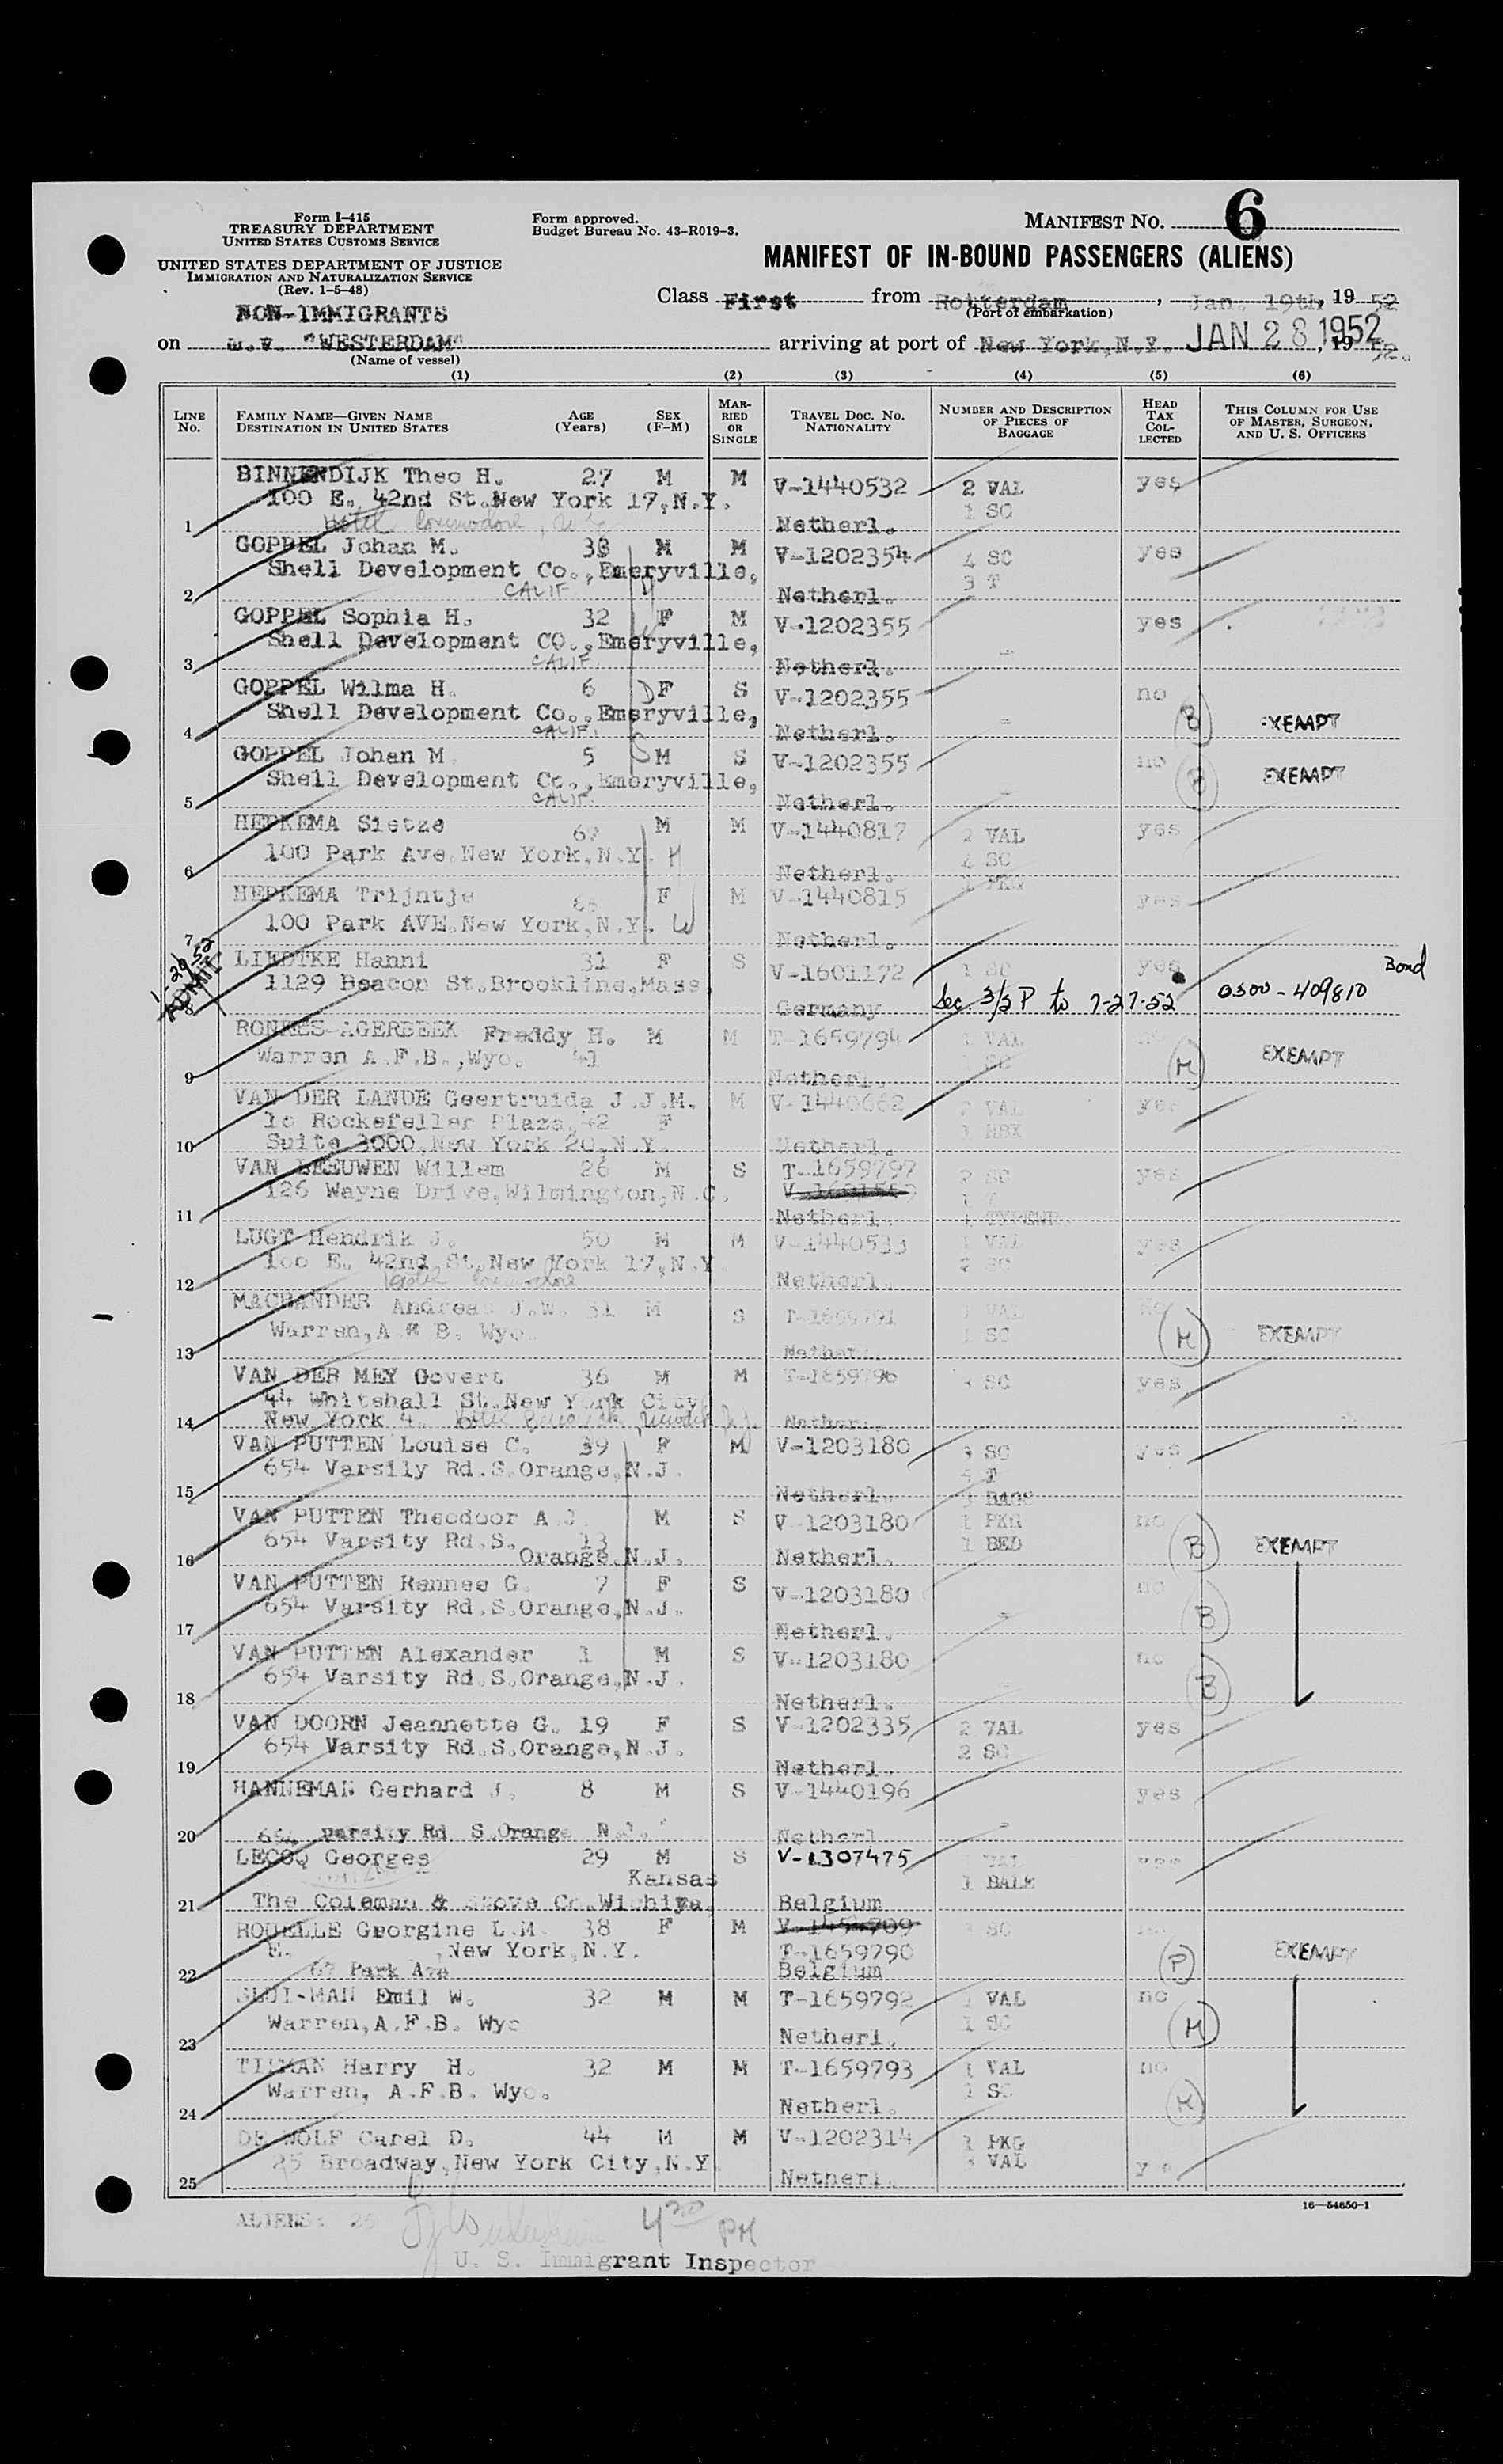 Form I-415
TREASURY DEPARTMENT
UNITED STATES CUSTOMS SERVICE
UNITED STATES DEPARTMENT OF JUSTICE
IMMIGRATION AND NATURALIZATION SERVICE
(Rev. 1-5-48)
Form approved.
Budget Bureau No. 43-R019-3.
MANIFEST NO. 6
MANIFEST OF IN-BOUND PASSENGERS (ALIENS)
Class First from Rotterdam, Jan. 19th, 19 52
(Port of embarkation)
NON-IMMIGRANTS
on "WESTERDAM" arriving at port of New York, N.Y. JAN 28 1952, 19 52.
(Name of vessel)
(1) (2) (3) (4) (5) (6)
LINE NO. FAMILY NAME—GIVEN NAME DESTINATION IN UNITED STATES AGE (Years) SEX (F-M) MARRIED OR SINGLE TRAVEL DOC. NO. NATIONALITY NUMBER AND DESCRIPTION OF PIECES OF BAGGAGE HEAD TAX COLLECTED THIS COLUMN FOR USE OF MASTER, SURGEON, AND U. S. OFFICERS
BINNENDIJK Theo H. 27 M M V-1440532 2 VAL yes
100 E. 42nd St.New York 17,N.Y. 1 SC
1 Hotel Commodore, Netherl.
GOPPEL Johan M. 38 M M V-1202354 4 SC yes
Shell Development Co.,Emeryville, 3 T
2 CALIF Netherl.
GOPPEL Sophia H. 32 F M V-1202355 yes
Shell Development CO.,Emeryville,
3 CALIF. Netherl.
GOPPEL Wilma H. 6 D F S V-1202355 no
Shell Development Co.,Emeryville, B EXEMPT
4 CALIF. Netherl.
GOPPEL Johan M. 5 S M S V-1202355 no
Shell Development Co.,Emeryville, B EXEMPT
5 CALIF. Netherl.
HEPKEMA Sietze 67 M M V-1440817 2 VAL yes
100 Park Ave.New York,N.Y. H 4 SC
6 Netherl. 1 PKG
HEPKEMA Trijntje 65 F M V-1440815 yes
100 Park AVE.New York,N.Y. W
7 Netherl.
1-29-52 ADMIT
LIEDTKE Hanni 31 F S V-1601172 1 SC yes Bond
1129 Beacon St.Brookline,Mass. Sec. 3/2 P to 7-27-52 0300-409810
8 Germany
RONKES-AGERBEEK Freddy H. M M T-1659794 1 VAL no
Warren A.F.B.,Wyo. 41 SC M EXEMPT
9 Netherl.
VAN DER LANDE Geertruida J.J.M. M V-1440662 2 VAL yes
10 Rockefeller Plaza, 42 F 1 HBX
10 Suite 3000,New York 20,N.Y. Netherl.
VAN LEEUWEN Willem 26 M S T-1659797 2 SC yes
126 Wayne Drive,Wilmington,N.C.
11 Netherl.
LUGT Hendrik J. 50 M M V-1440533 1 VAL yes
100 E. 42nd St.New York 17,N.Y. 2 SC
12 Hotel Commodore Netherl.
MACHANDER Andreas J.W. 31 M S T-1659791 VAL no
Warren,A F B. Wyo. 1 SC M EXEMPT
13 Nether
VAN DER MEY Govert 36 M M T-1659796 SC yes
44 Whitehall St.New York City
14 New York 4. Nether
VAN PUTTEN Louise C. 39 F M V-1203180 3 SC yes
654 Varsily Rd.S.Orange,N.J. T
15 Netherl. BAGS
VAN PUTTEN Theodoor A.J. M S V-1203180 1 PKG no
654 Varsity Rd.S. 13 1 BED B EXEMPT
16 Orange,N.J. Netherl.
VAN PUTTEN Rennee G. 7 F S V-1203180 no
654 Varsity Rd.S.Orange,N.J. B
17 Netherl.
VAN PUTTEN Alexander 1 M S V-1203180 no
654 Varsity Rd.S.Orange,N.J. B
18 Netherl.
VAN DOORN Jeannette G. 19 F S V-1202335 2 VAL yes
654 Varsity Rd.S.Orange,N.J. 2 SC
19 Netherl.
HANNEMAN Gerhard J. 8 M S V-1440196 yes
20 654 Varsity Rd S.Orange N.J. Netherl
LECOQ Georges 29 M S V-1307475 VAL yes
Kansas 1 BALE
21 The Coleman & Stove Co.Wichiya, Belgium
ROUELLE Georgine L.M. 38 F M V-1454709 SC
E. ,New York,N.Y. T-1659790 P EXEMPT
22 67 Park Ave Belgium
SLUI-MAN Emil W. 32 M M T-1659792 1 VAL no
Warren,A.F.B. Wyo 1 SC M
23 Netherl.
TILMAN Harry H. 32 M M T-1659793 1 VAL no
Warren, A.F.B. Wyo. 1 SC M
24 Netherl.
DE WOLF Carel D. 44 M M V-1202314 1 PKG
25 Broadway,New York City,N.Y. VAL yes
25 Netherl.
16—54650-1
ALIENS: 25 4 30 PM
U. S. Immigrant Inspector